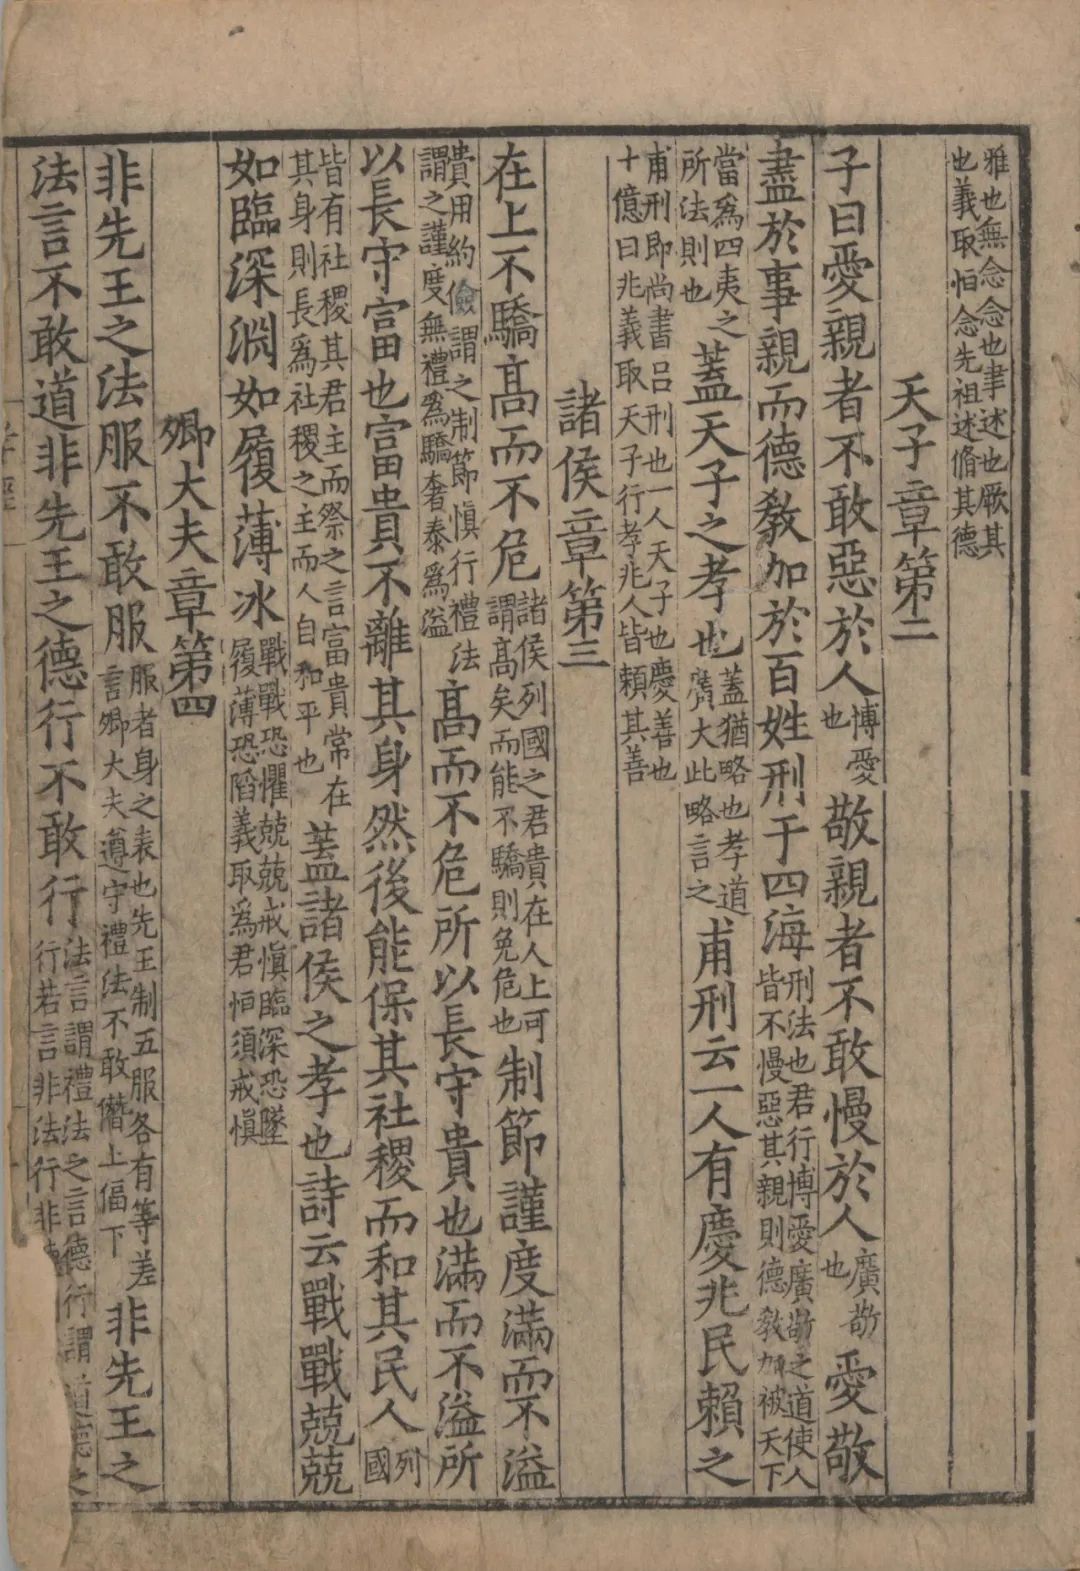 雅也無念念也聿述也厥其
也義取恒念先祖述脩其德
天子章第二
子曰愛親者不敢惡於人博愛也敬親者不敢慢於人廣敬也愛敬
盡於事親而德教加於百姓刑于四海刑法也君行博愛廣敬之道使人皆不慢惡其親則德教加被天下
當爲四夷之所法則也蓋天子之孝也蓋猶略也孝道廣大此略言之甫刑云一人有慶兆民賴之
甫刑即尚書呂刑也一人天子也慶善也
十億曰兆義取天子行孝兆人皆賴其善
諸侯章第三
在上不驕高而不危諸侯列國之君貴在人上可謂高矣而能不驕則免危也制節謹度滿而不溢
費用約儉謂之制節慎行禮法謂之謹度無禮爲驕奢泰爲溢高而不危所以長守貴也滿而不溢所
以長守富也富貴不離其身然後能保其社稷而和其民人列國
皆有社稷其君主而祭之言富貴常在其身則長爲社稷之主而人自和平也蓋諸侯之孝也詩云戰戰兢兢
如臨深淵如履薄冰戰戰恐懼兢兢戒慎臨深恐墜履薄恐陷義取爲君恒須戒慎
卿大夫章第四
非先王之法服不敢服服者身之表也先王制五服各有等差言卿大夫遵守禮法不敢僭上偪下非先王之
法言不敢道非先王之德行不敢行法言謂禮法之言德行謂道德之行若言非法行非德